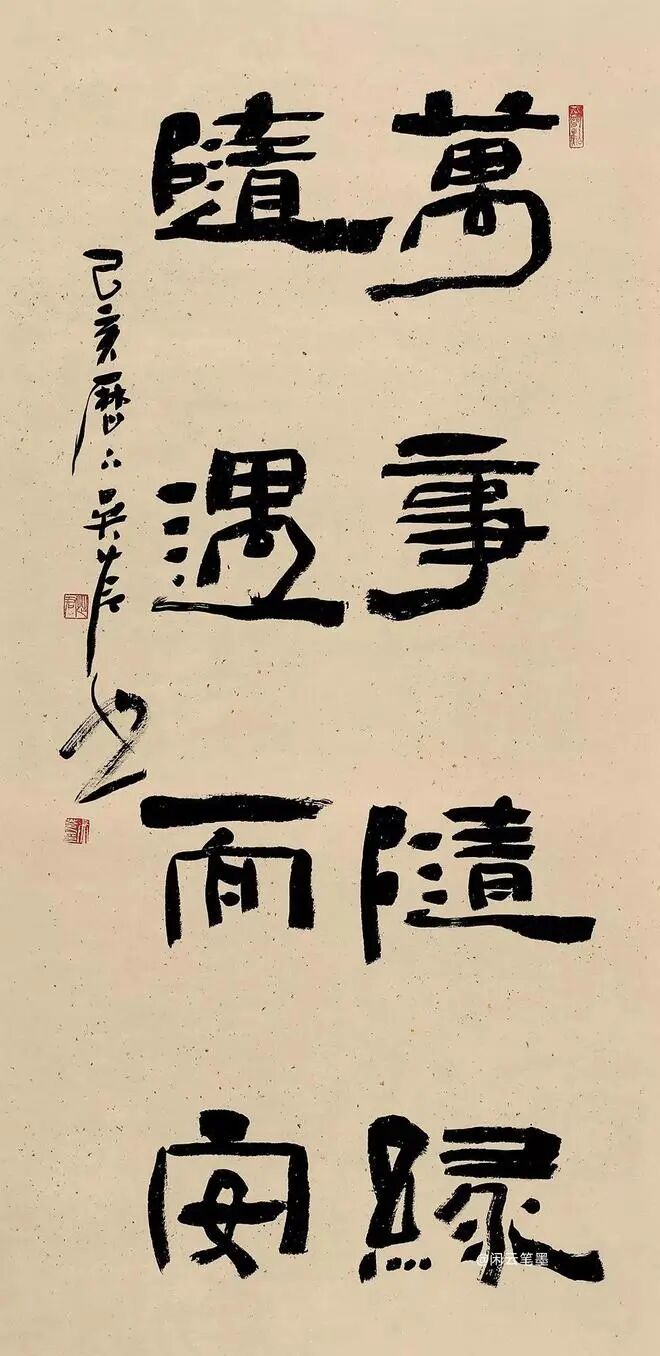 萬事隨緣
隨遇而安
己亥曆六吳
@闲云笔墨